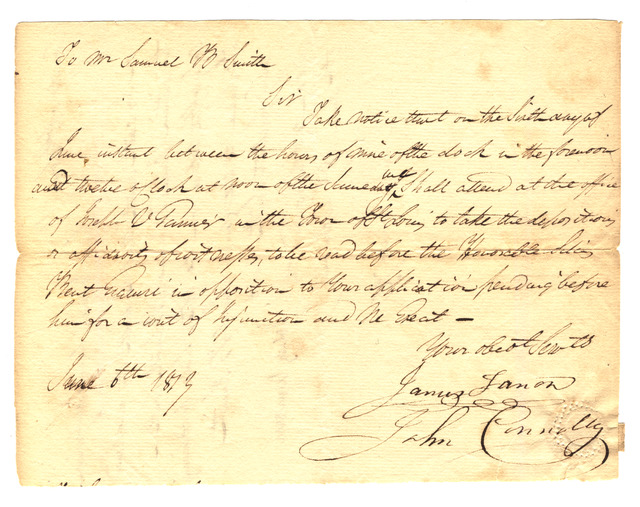 To Mr Samuel B Smith
Sir
Take notice that on the Sixth day of
June instant between the hours of nine of the clock in the forenoon
and twelve o clock at noon of the Same day we Shall attend at the office
of Joseph V Garnier in the Town of St Louis to take the depositions
or affidavits of witnesses, to be read before the Honorable Silas
Bent Esquire in opposition to Your application pending before
him for a writ of Injunction and Ne Exeat —
Your obedt Servts
June 6th 1813
James
John Connolly